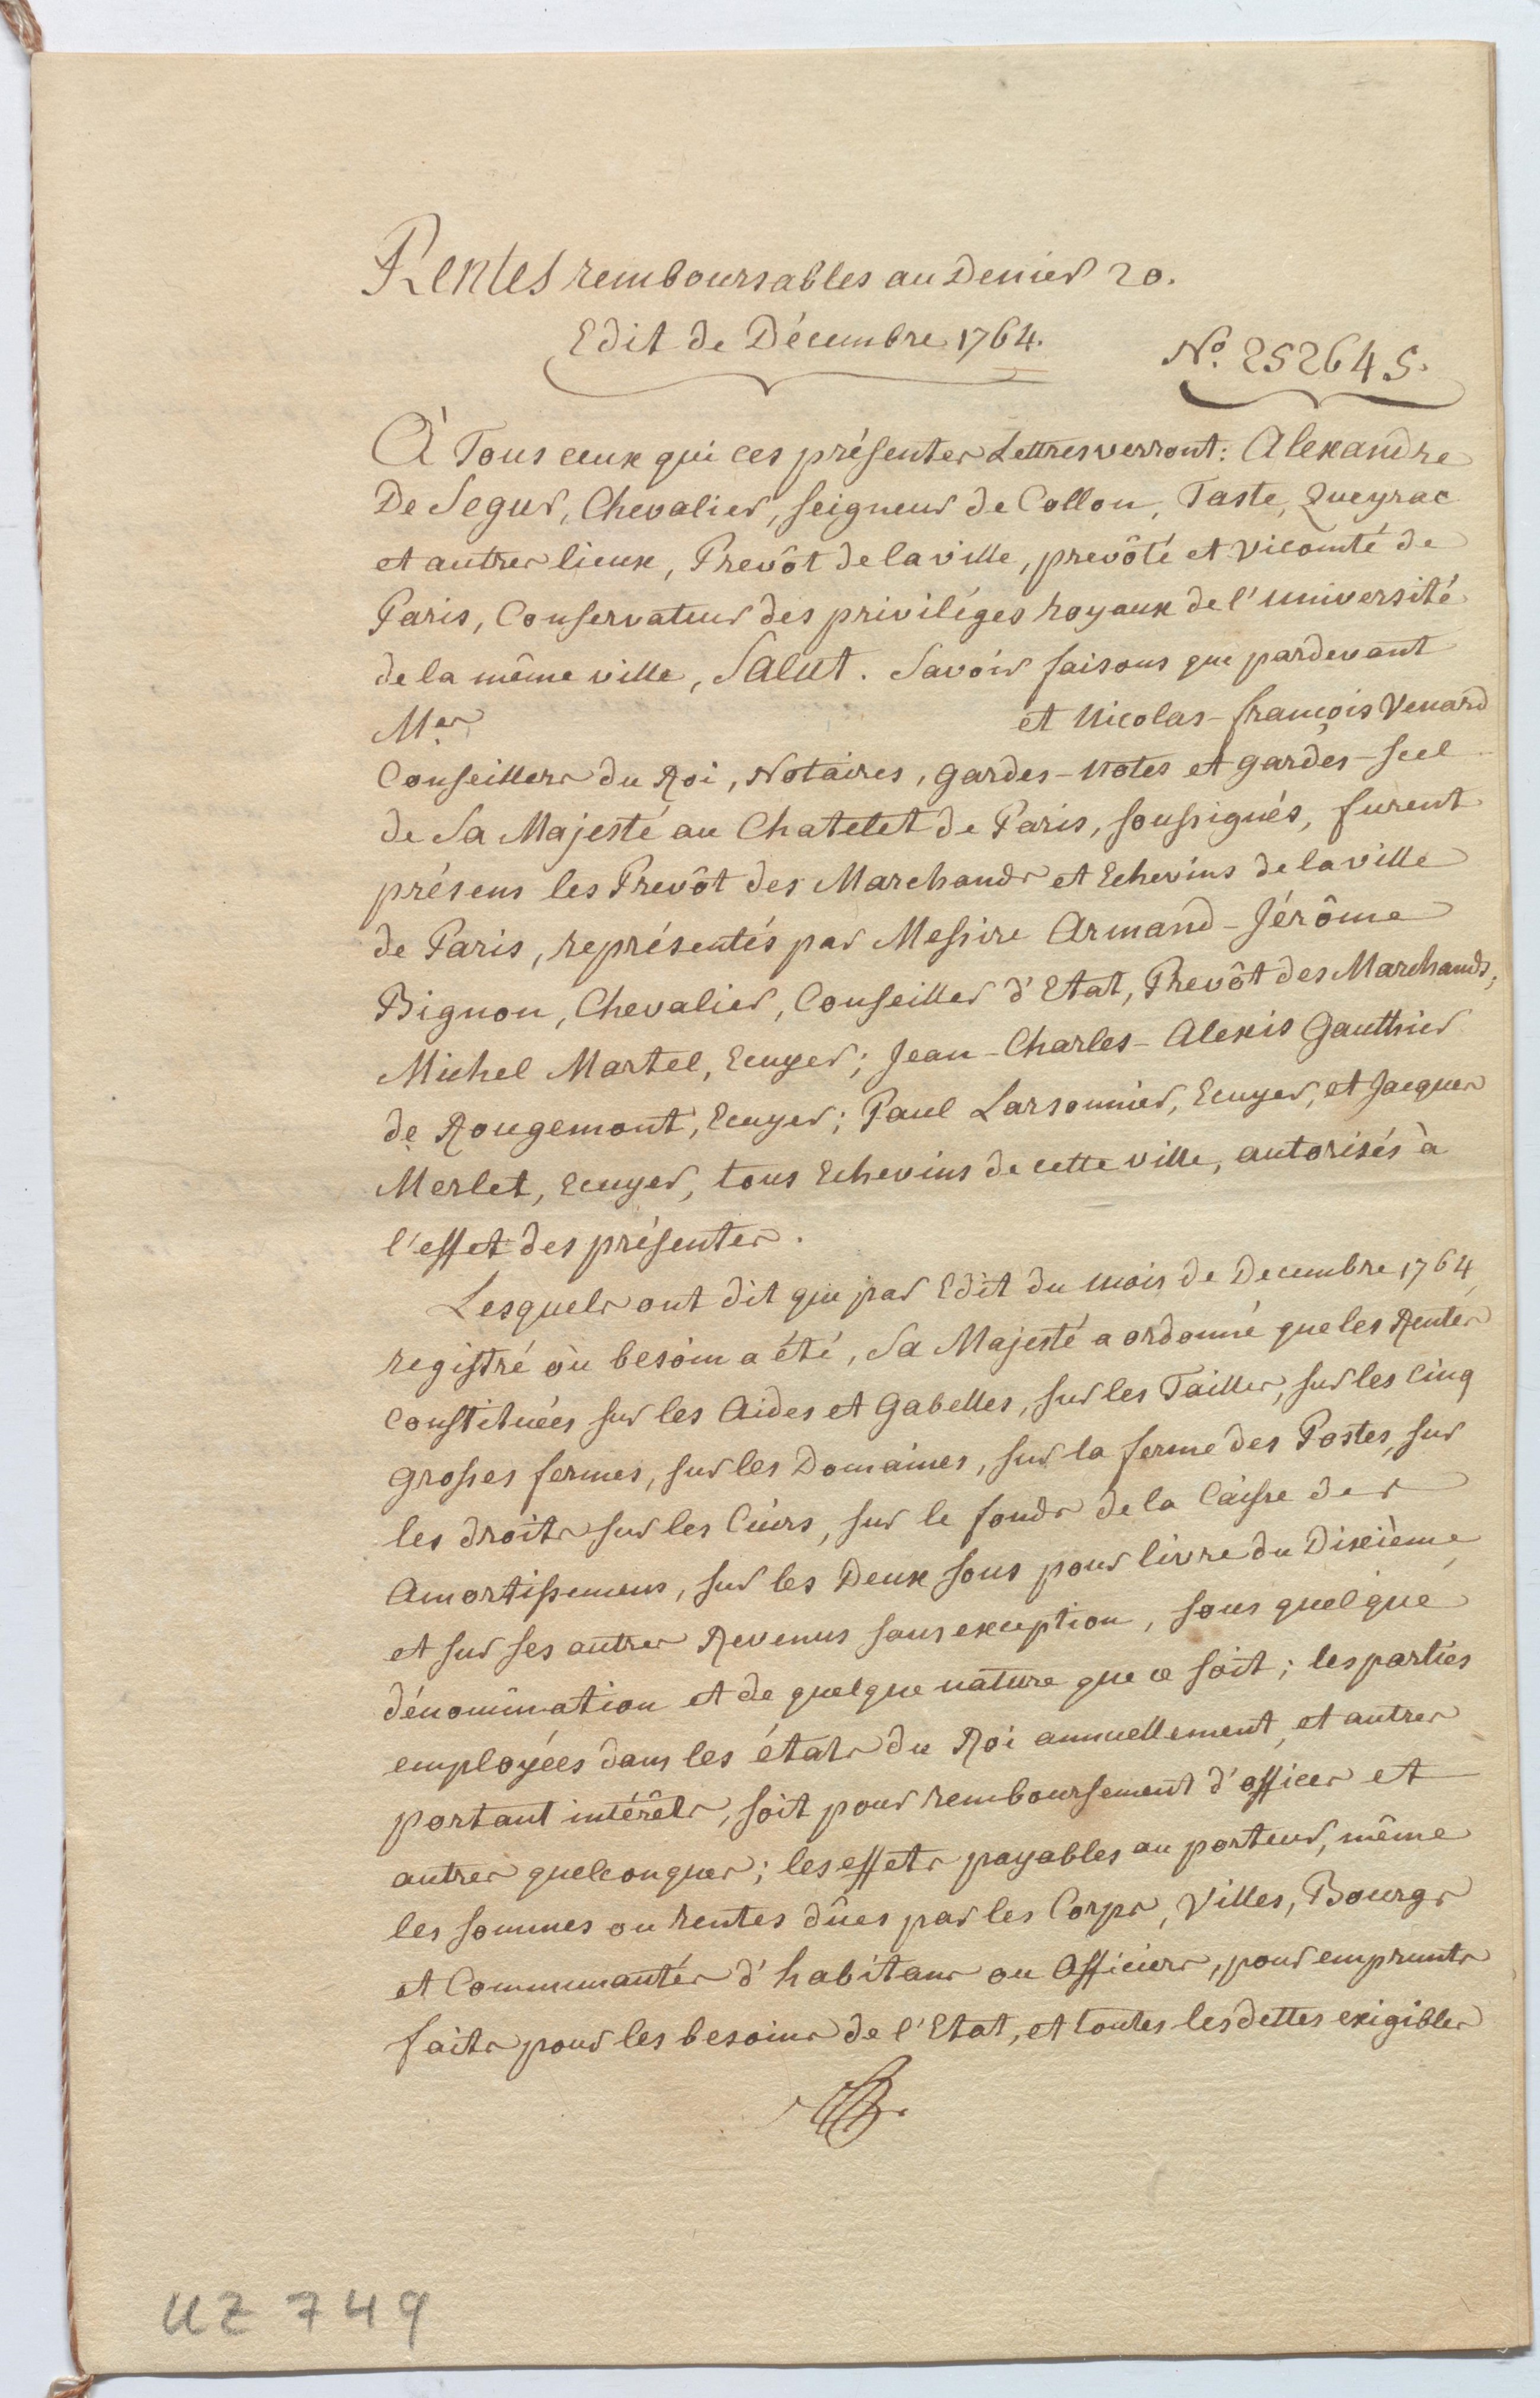 Rentes remboursables au Denier 20.
Edit de Décembre 1764.
No. 252645.
À Tous ceux qui ces présentes Lettres verront: Alexandre
De Segur, Chevalier, seigneur de Collon, Taste, Queyrac
et autres lieux, Prevôt de la ville, prevôté et vicomté de
Paris, Conservateur des priviléges royaux de l'université
de la même ville, Salut. Savoir faisons que pardevant
Mes et Nicolas-françois Venard
Conseillers du Roi, Notaires, gardes-notes et gardes-scel
de Sa Majesté au Chatelet de Paris, soussignés, furent
présens les Prevôt des Marchands et Echevins de la ville
de Paris, représentés par Messire Armand-Jérôme
Bignon, Chevalier, Conseiller d'Etat, Prevôt des Marchands;
Michel Martel, Ecuyer; Jean-Charles-Alexis Gauthier
de Rougemont, Ecuyer; Paul Larsonnier, Ecuyer, et Jacques
Merlet, Ecuyer, tous Echevins de cette ville, autorisés à
l'effet des présentes.
Lesquels ont dit que par Edit du mois de Decembre 1764
registré où besoin a été, Sa Majesté a ordonné que les Rentes
constituées sur les Aides et Gabelles, sur les Tailles, sur les Cinq
grosses fermes, sur les Domaines, sur la ferme des Postes, sur
les droits sur les Cuirs, sur le fonds de la Caisse des
Amortissemens, sur les Deux sous pour livre du Dixième
et sur ses autres Revenus sans exception, sous quelque
dénomination et de quelque nature que ce soit; les parties
employées dans les états du Roi annuellement, et autres
portant intérêts, soit pour remboursement d'offices et
autres quelconques; les effets payables au porteur, même
les sommes ou rentes dûes par les Corps, Villes, Bourgs
et Communautés d'habitans ou Officiers, pour emprunts
faits pour les besoins de l'Etat, et toutes les dettes exigibles
UZ 749